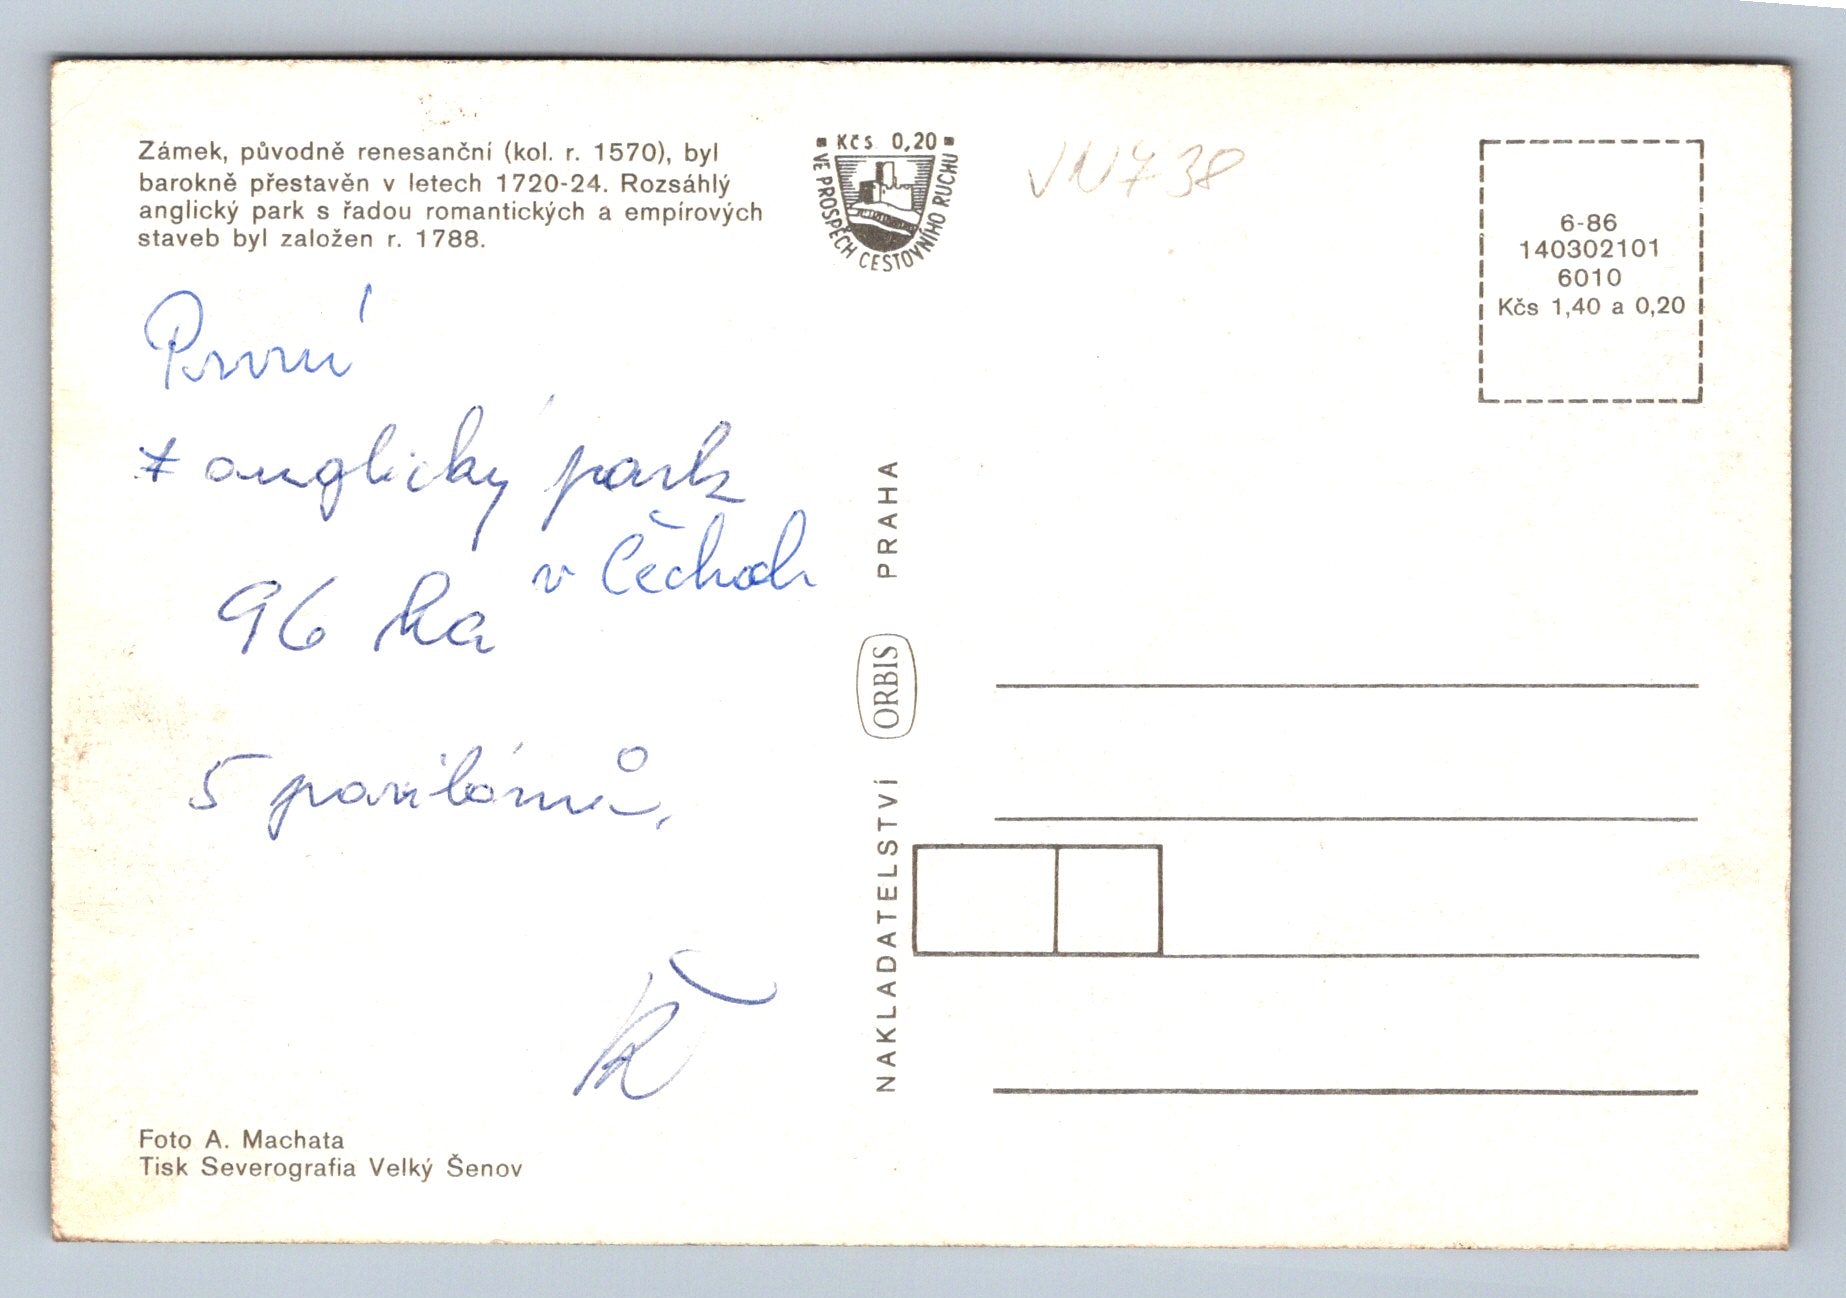 Zámek, původně renesanční (kol. r. 1570), byl
barokně přestavěn v letech 1720-24. Rozsáhlý
anglický park s řadou romantických a empírových
staveb byl založen r. 1788.
Kčs 0,20
VE PROSPĚCH CESTOVNÍHO RUCHU
VN738
6-86
140302101
6010
Kčs 1,40 a 0,20
První
anglický park
v Čechách
96 ha
5 pavilónů.
Foto A. Machata
Tisk Severografia Velký Šenov
NAKLADATELSTVÍ ORBIS PRAHA